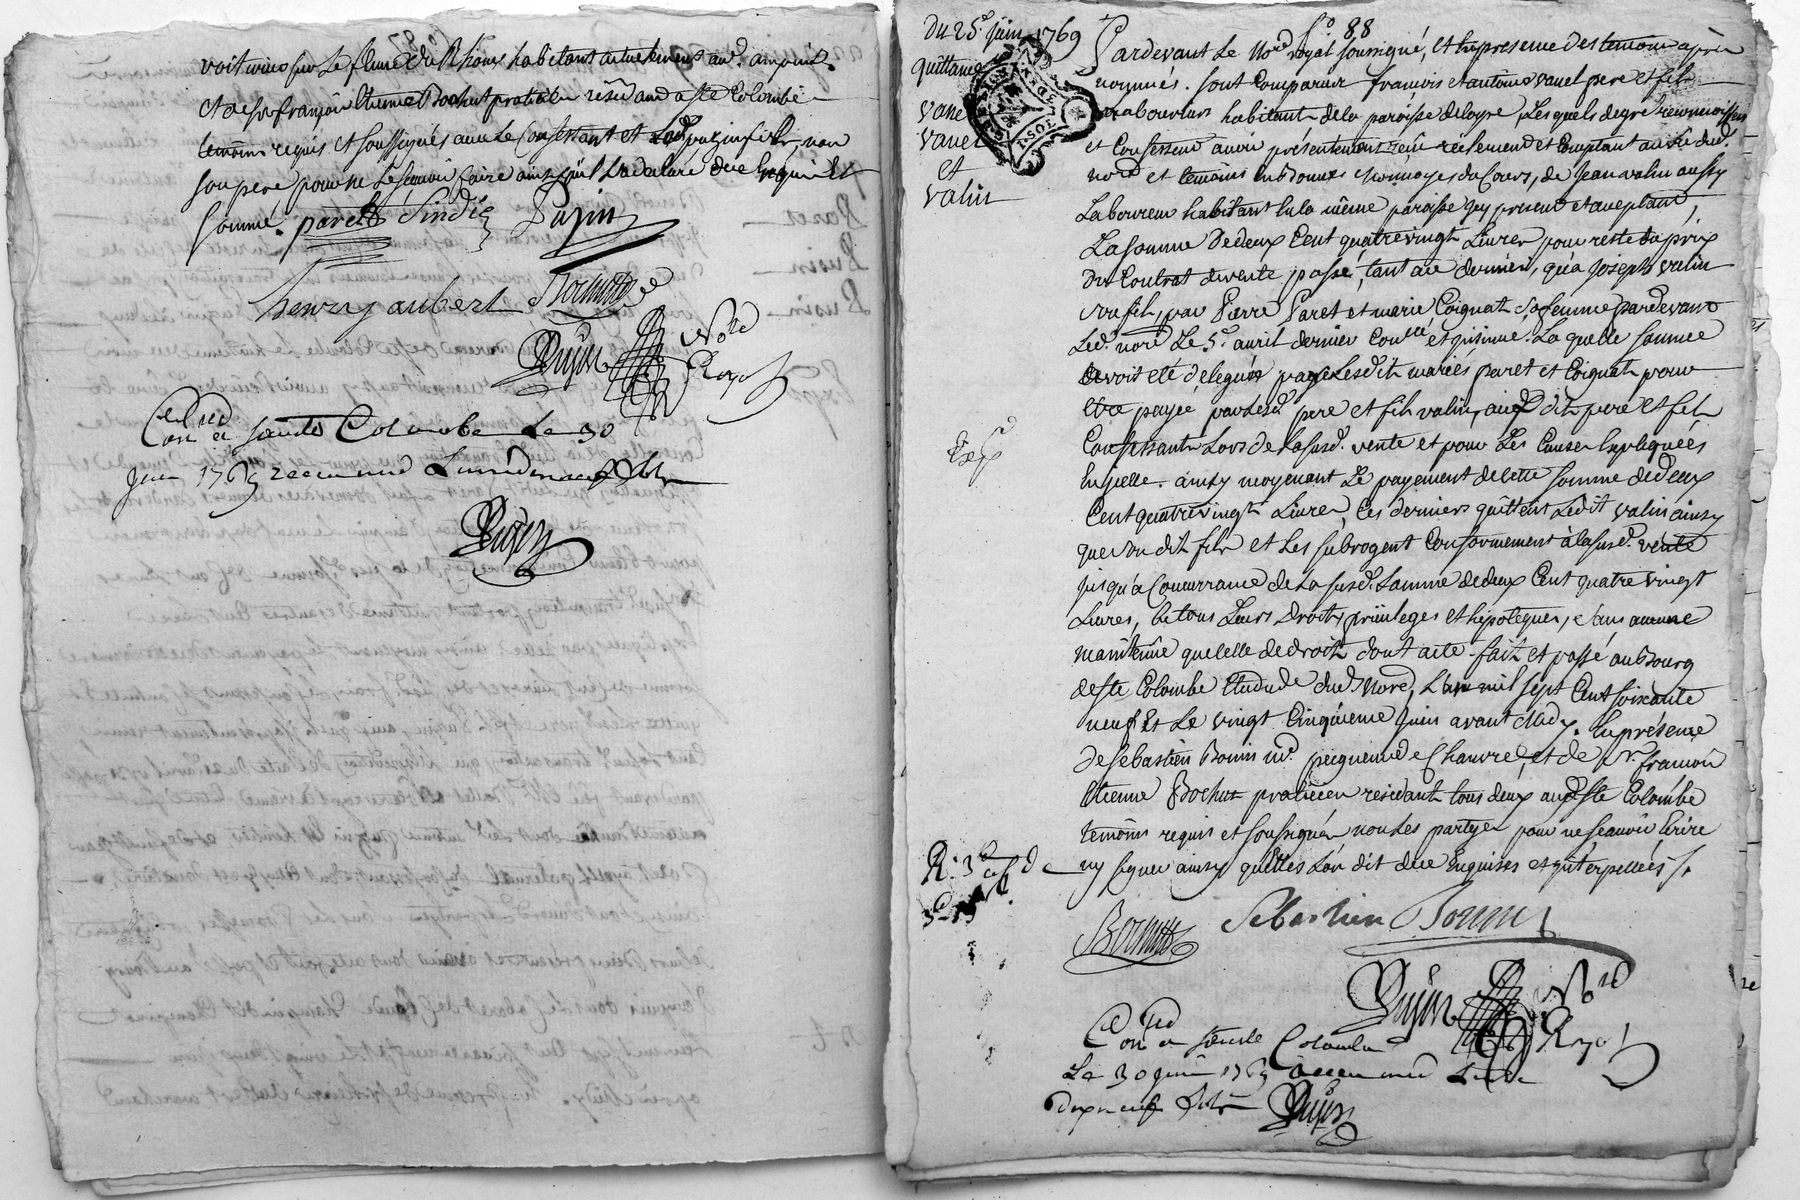 voiturier sur Le fleuve du Rhone habitant actuellement aud. ampuis
et de sr françois Etienne Bochut praticien resid. aud. ste Colombe
temoins requis et soussignés avec Le Confessant et Led. puzin fils, non
son pere pour ne Le scavoir faire ainsi qu'il L'a declaré de ce Enquis Et
sommé. paret Sindic Puzin
henry aubert Bochutt
Puzin Nore Royal
Con.lé a sainte Colombe Le 30
Juin 1769 receu
Puzin
du 25e Juin 1769
quittance
vanel
vanel
et
valin
Exp.d
fo 88
Pardevant Le Nore royal soussigné, et En presence des temoins après
nommés. sont Comparus françois et antoine vanel pere et fils
Laboureurs habitants de la paroisse de loyre, Lesquels de gré reconnoissent
et Confessent avoir présentement reçu réelement et Comptant au vû dud.
nore et temoins En Bonnes monnoyes du Cours, de Jean valin aussy
Laboureur habitant En la même paroisse icy present et aceptant,
La somme de deux Cent quatre vingt Livres pour reste du prix
du Contrat de vente passé, tant au dernier, qu'a Joseph valin
son fils, par Pierre Paret et marie Coignat sa femme pardevant
Led. nore Le 5e avril dernier Conllé et insinué. La quelle somme
avoit été déleguée par Lesdits mariés paret et Coignat pour
etre payée par Lesd. pere et fils valin, auxd. dits pere et fils
Confessants Lors de La susd. vente et pour Les Causes Expliquées
En jcelle. ainsy moyenant Le payement de cette somme de deux
Cent quatre vingt Livres, Ces derniers quittent Ledit valin ainsy
que son dit fils et Les subrogent Conformement à la susd. vente
jusqu'a Concurrance de La susd. somme de deux Cent quatre vingt
Livres, En tous Leurs droits, privileges et hipoteques, sans aucune
maintenüe que celle de droit dont acte fait et passé au Bourg
de ste Colombe Etude dud. Nore, L'an mil sept Cent soixante
neuf Et Le vingt Cinquieme Juin avant Midy. En présence
de Sebastien Bonin md. peigneur de Chanvre, et de sr. françois
Etienne Bochut praticien residants tous deux aud. ste Colombe
temoins requis et soussignés, non Les partyes pour ne scavoir Ecrire
ny signer ainsy qu'Elles L'on dit de ce Enquises et jnterpellées /.
Bochutt Sebastien Bonin
Puzin Nore Royal
Con.lé a sainte Colombe
Le 30 juin 1769 receu
dix neuf sols Puzin